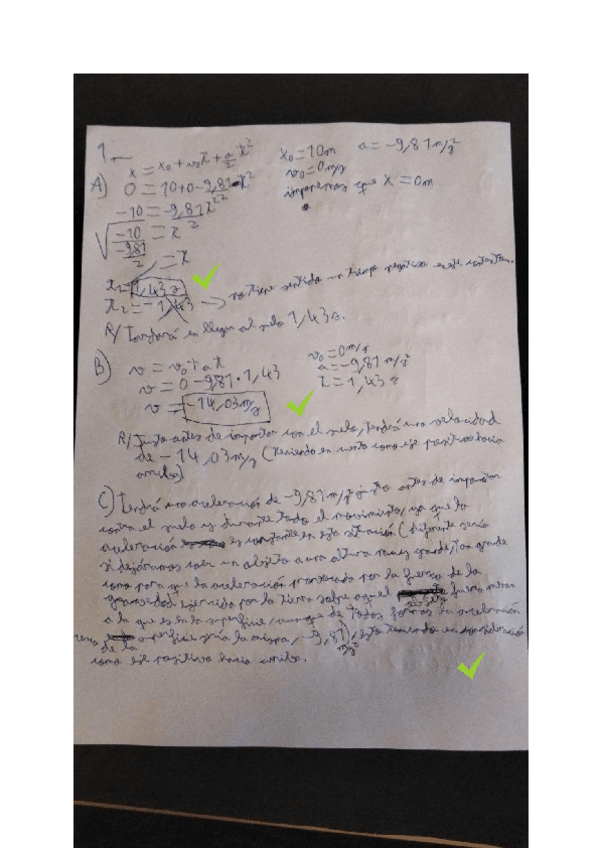 1.—
x = x₀ + v₀t + a/2 t²
x₀ = 10m a = -9,81 m/s²
v₀ = 0 m/s
imponemos que x = 0m
A) 0 = 10 + 0 - 9,81/2 t²
-10 = -9,81/2 t²
√(-10/(-9,81/2)) = t
= t
t₁ = 1,43 s
t₂ = -1,43 → no tiene sentido un tiempo negativo en este contexto.
R/ Tardará en llegar al suelo 1,43 s.
B) v = v₀ + at
v₀ = 0 m/s
v = 0 - 9,81 · 1,43
a = -9,81 m/s²
t = 1,43 s
v = -14,03 m/s
R/ Justo antes de impactar con el suelo, tendrá una velocidad
de -14,03 m/s (teniendo en cuenta como eje positivo hacia
arriba)
C) Tendrá una aceleración de -9,81 m/s² justo antes de impactar
contra el suelo y durante todo el movimiento, ya que la
aceleración es constante en esta situación (diferente sería
si dejáramos caer un objeto a una altura muy grande, tan grande
como para que la aceleración provocada por la fuerza de la
gravedad ejercida por la tierra sobre aquel fuera menor
a la que es en la superficie aunque de todas formas la aceleración
cerca de la superficie sería la misma, -9,81 m/s²), esto teniendo en consideración
como eje positivo hacia arriba.